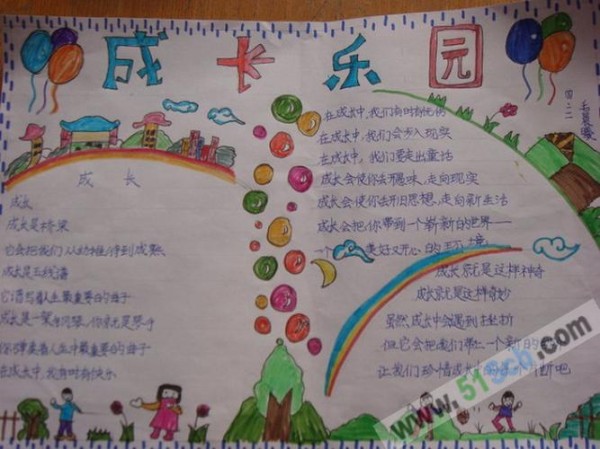 成长乐园
四二
成 长
成长
成长是桥梁
它会把我们从幼稚
成熟
成长是五线谱
它谱写人生最重要的曲子
成长是一架
人生中最重要的曲子
在成长中,我有时有快乐
在成长中,我们有时有
在成长中,我们会步入现实
在成长中,我们要走出童话
成长会使你去开愚昧,走向现实
成长会使你去开旧思想,走向新生活
成长会把你带到一个崭新的世界——
一个 美好又开心的环境
成长就是这样神奇
成长就是这样奇妙
虽然成长中会遇到挫折
但它会把我们带 一个新的
让我们珍惜成长中的 吧
www.51Sch.com